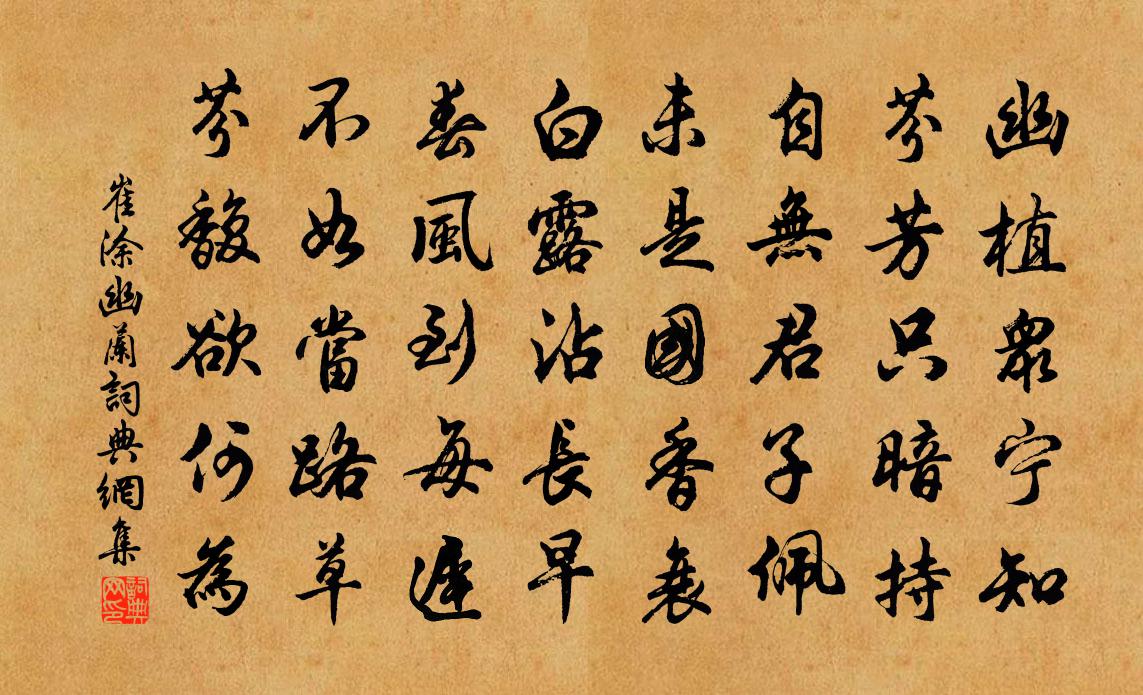 幽植眾宁知
芬芳只暗持
自無君子佩
未是國香衰
白露沾長早
春風到每遲
不如當路草
芬馥欲何為
崔涂幽蘭詞典網集
詞典网印